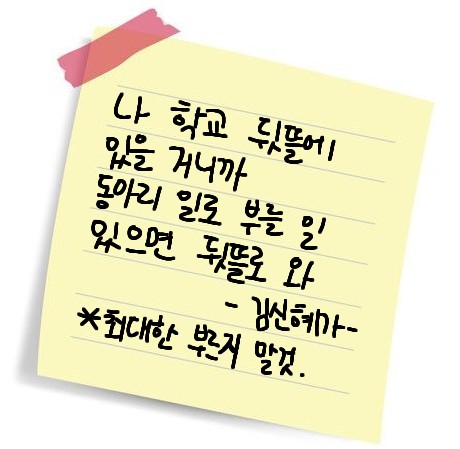 나 학교 뒷뜰에
있을 거니까
동아리 일로 부를 일
있으면 뒷뜰로 와
- 김신혜가-
*최대한 부르지 말것.